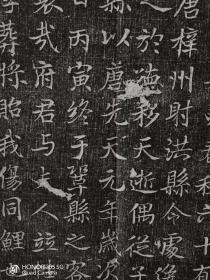 春秋六十
唐梓州射洪縣令處
之於天逝偶從子
縣以唐先天元年歲次
日丙寅終于鞏縣之客
哀哉府君与夫人竝
葬將貽我傷同鯉
HONOR